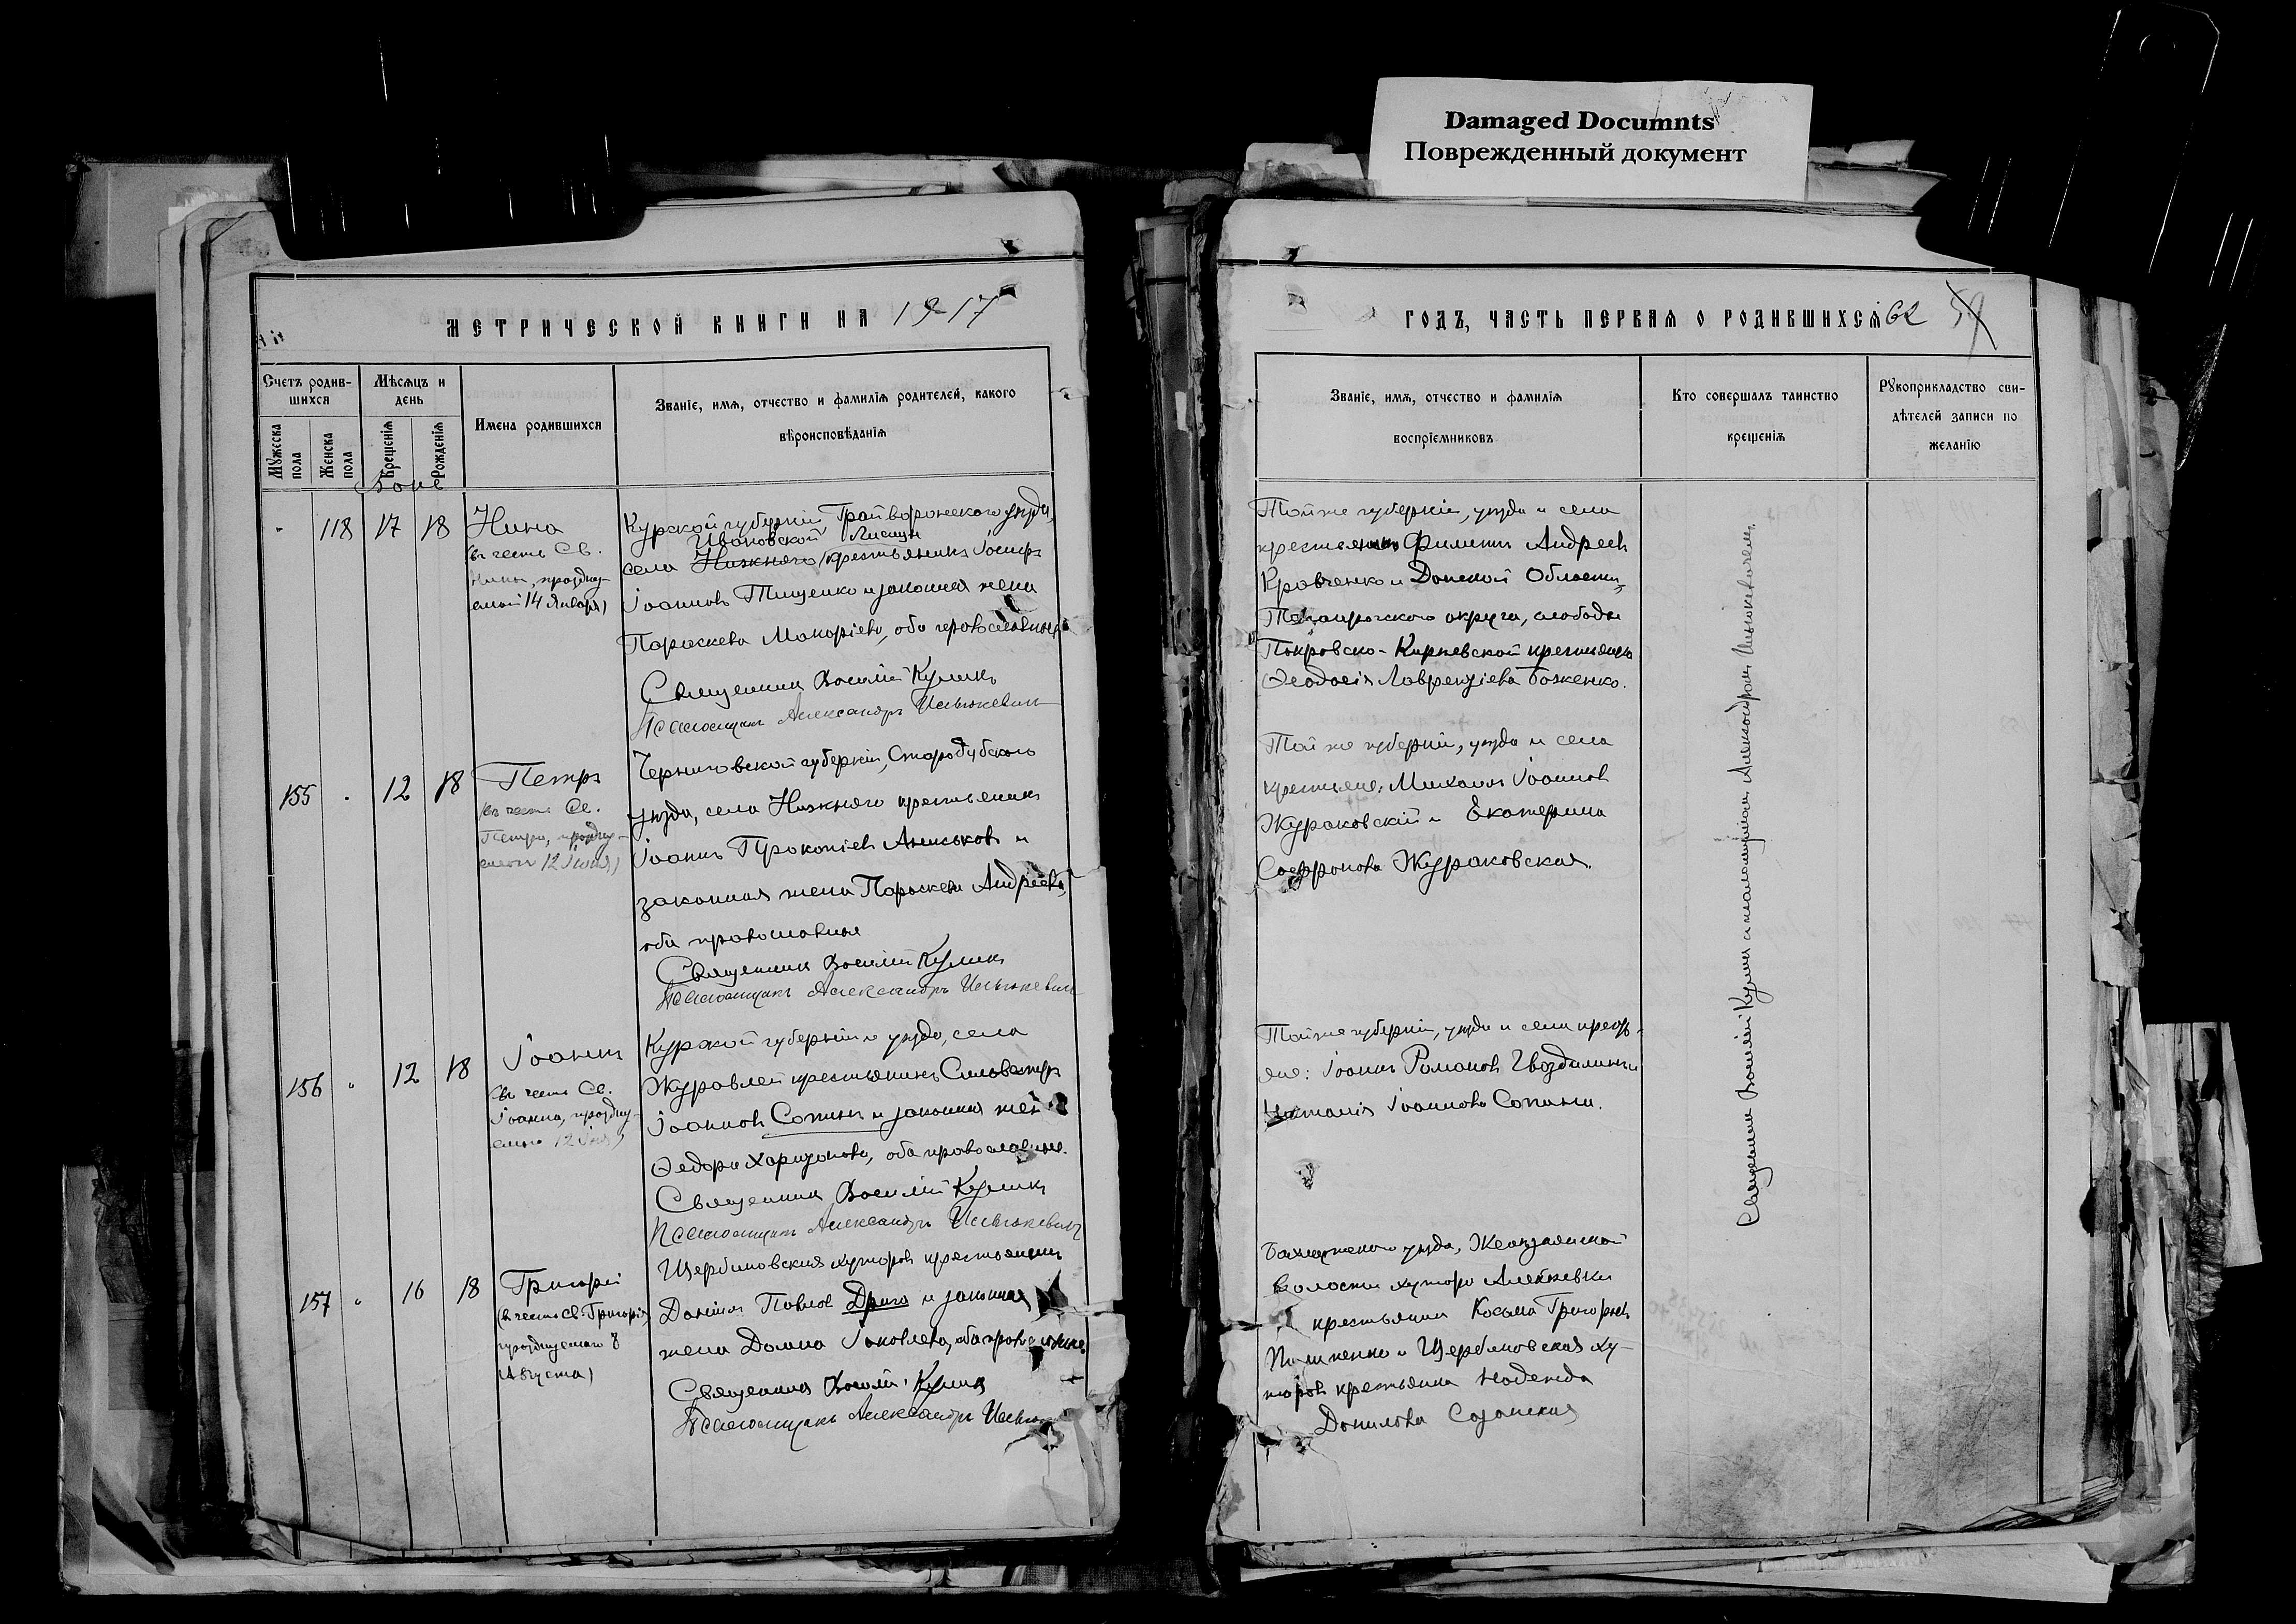 Damaged Documnts
Поврежденный документ
МЕТРИЧЕСКОЙ КНИГИ НА 1917
Счетъ родив-
шихся
Мѣсяцъ и
день
Имена родившихся
Званіе, имя, отчество и фамилія родителей, какого
вѣроисповѣданія
Мужеска
пола
Женска
пола
Крещенія
Рожденія
118 17 18 Нина
(въ честь Св.
Нины, праздну-
емой 14 Января)
Курской губерніи, Грайворонскаго уѣзда,
Ивановской Лисицы
села Нижняго крестьянинъ Іосифъ
Іоанновъ Тищенко и законная жена
Параскева Макаріева, оба православные
Священникъ Василій Куликъ
Псаломщикъ Александръ
155 12 18 Петръ
(въ честь Св.
Петра, праздну-
емаго 12 Іюня)
Черниговской губерніи, Стародубскаго
уѣзда, села Нижняго крестьянинъ
Іоаннъ Прокопіевъ Аниськовъ и
законная жена Параскева Андреева,
оба православные
Священникъ Василій Куликъ
Псаломщикъ Александръ
156 12 18 Іоаннъ
(въ честь Св.
Іоанна, праздну-
емаго 12 Іюня)
Курской губерніи и уѣзда, села
Журавлей крестьянинъ
Іоанновъ Сопинъ и законная жена
Ѳедора Харитонова, оба православные.
Священникъ Василій Куликъ
Псаломщикъ Александръ
157 16 18 Григорій
(въ честь Св. Григорія
празднуемаго 8
Августа)
Щербиновскихъ хуторовъ крестьянинъ
Даніилъ Павловъ Дрига и законная
жена Домна Іаковлева, оба православные.
Священникъ Василій Куликъ
Псаломщикъ Александръ
ГОДЪ, ЧАСТЬ ПЕРВАЯ О РОДИВШИХСЯ 62 59
Званіе, имя, отчество и фамилія
воспріемниковъ
Кто совершалъ таинство
крещенія
Рукоприкладство сви-
дѣтелей записи по
желанію
Той же губерніи, уѣзда и села
крестьянинъ Филиппъ Андреевъ
Кравченко и Донской Области,
Таганрогскаго округа, слободы
Покровско-Киреевской крестьянка
Ѳеодосія Лаврентіева Боженко.
Той же губерніи, уѣзда и села
крестьяне: Михаилъ Іоанновъ
Жураковскій и Екатерина
Софронова Жураковская.
Той же губерніи, уѣзда и села кресть-
яне: Іоаннъ Романовъ Гвоздилинъ и
Наталія Іоаннова Сопина.
Бахмутскаго уѣзда, Желѣзянской
волости хутора
крестьянинъ Косьма Григорьевъ
и Щербиновскихъ ху-
торовъ крестьянка Надежда
Данилова
Священникъ Василій Куликъ и псаломщикъ Александръ